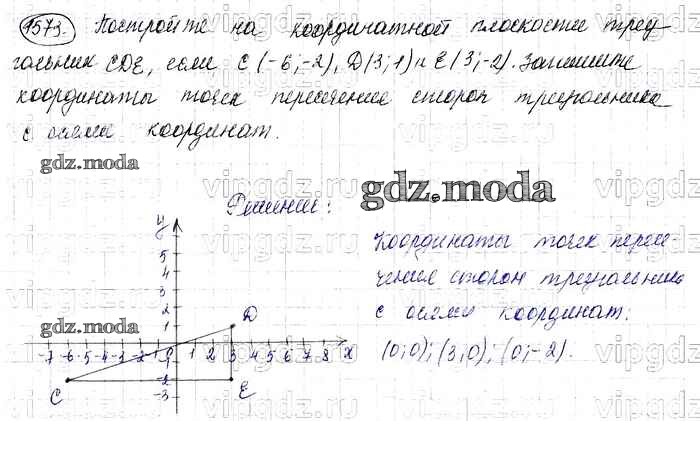 1573. Постройте на координатной плоскости треу-
гольник CDE, если C (-6;-2), D(3;1) и E(3;-2). Запишите
координаты точек пересечение сторон треугольника
с осями координат.
gdz.moda
vipgdz.ru
gdz.moda
Решение:
Координаты точек пересе-
чения сторон треугольника
с осями координат:
(0;0); (3;0); (0;-2).
gdz.moda
y
5
4
3
2
1
D
-7 -6 -5 -4 -3 -2 -1 0 1 2 3 4 5 6 7 8 x
-1
-2
-3
C
E